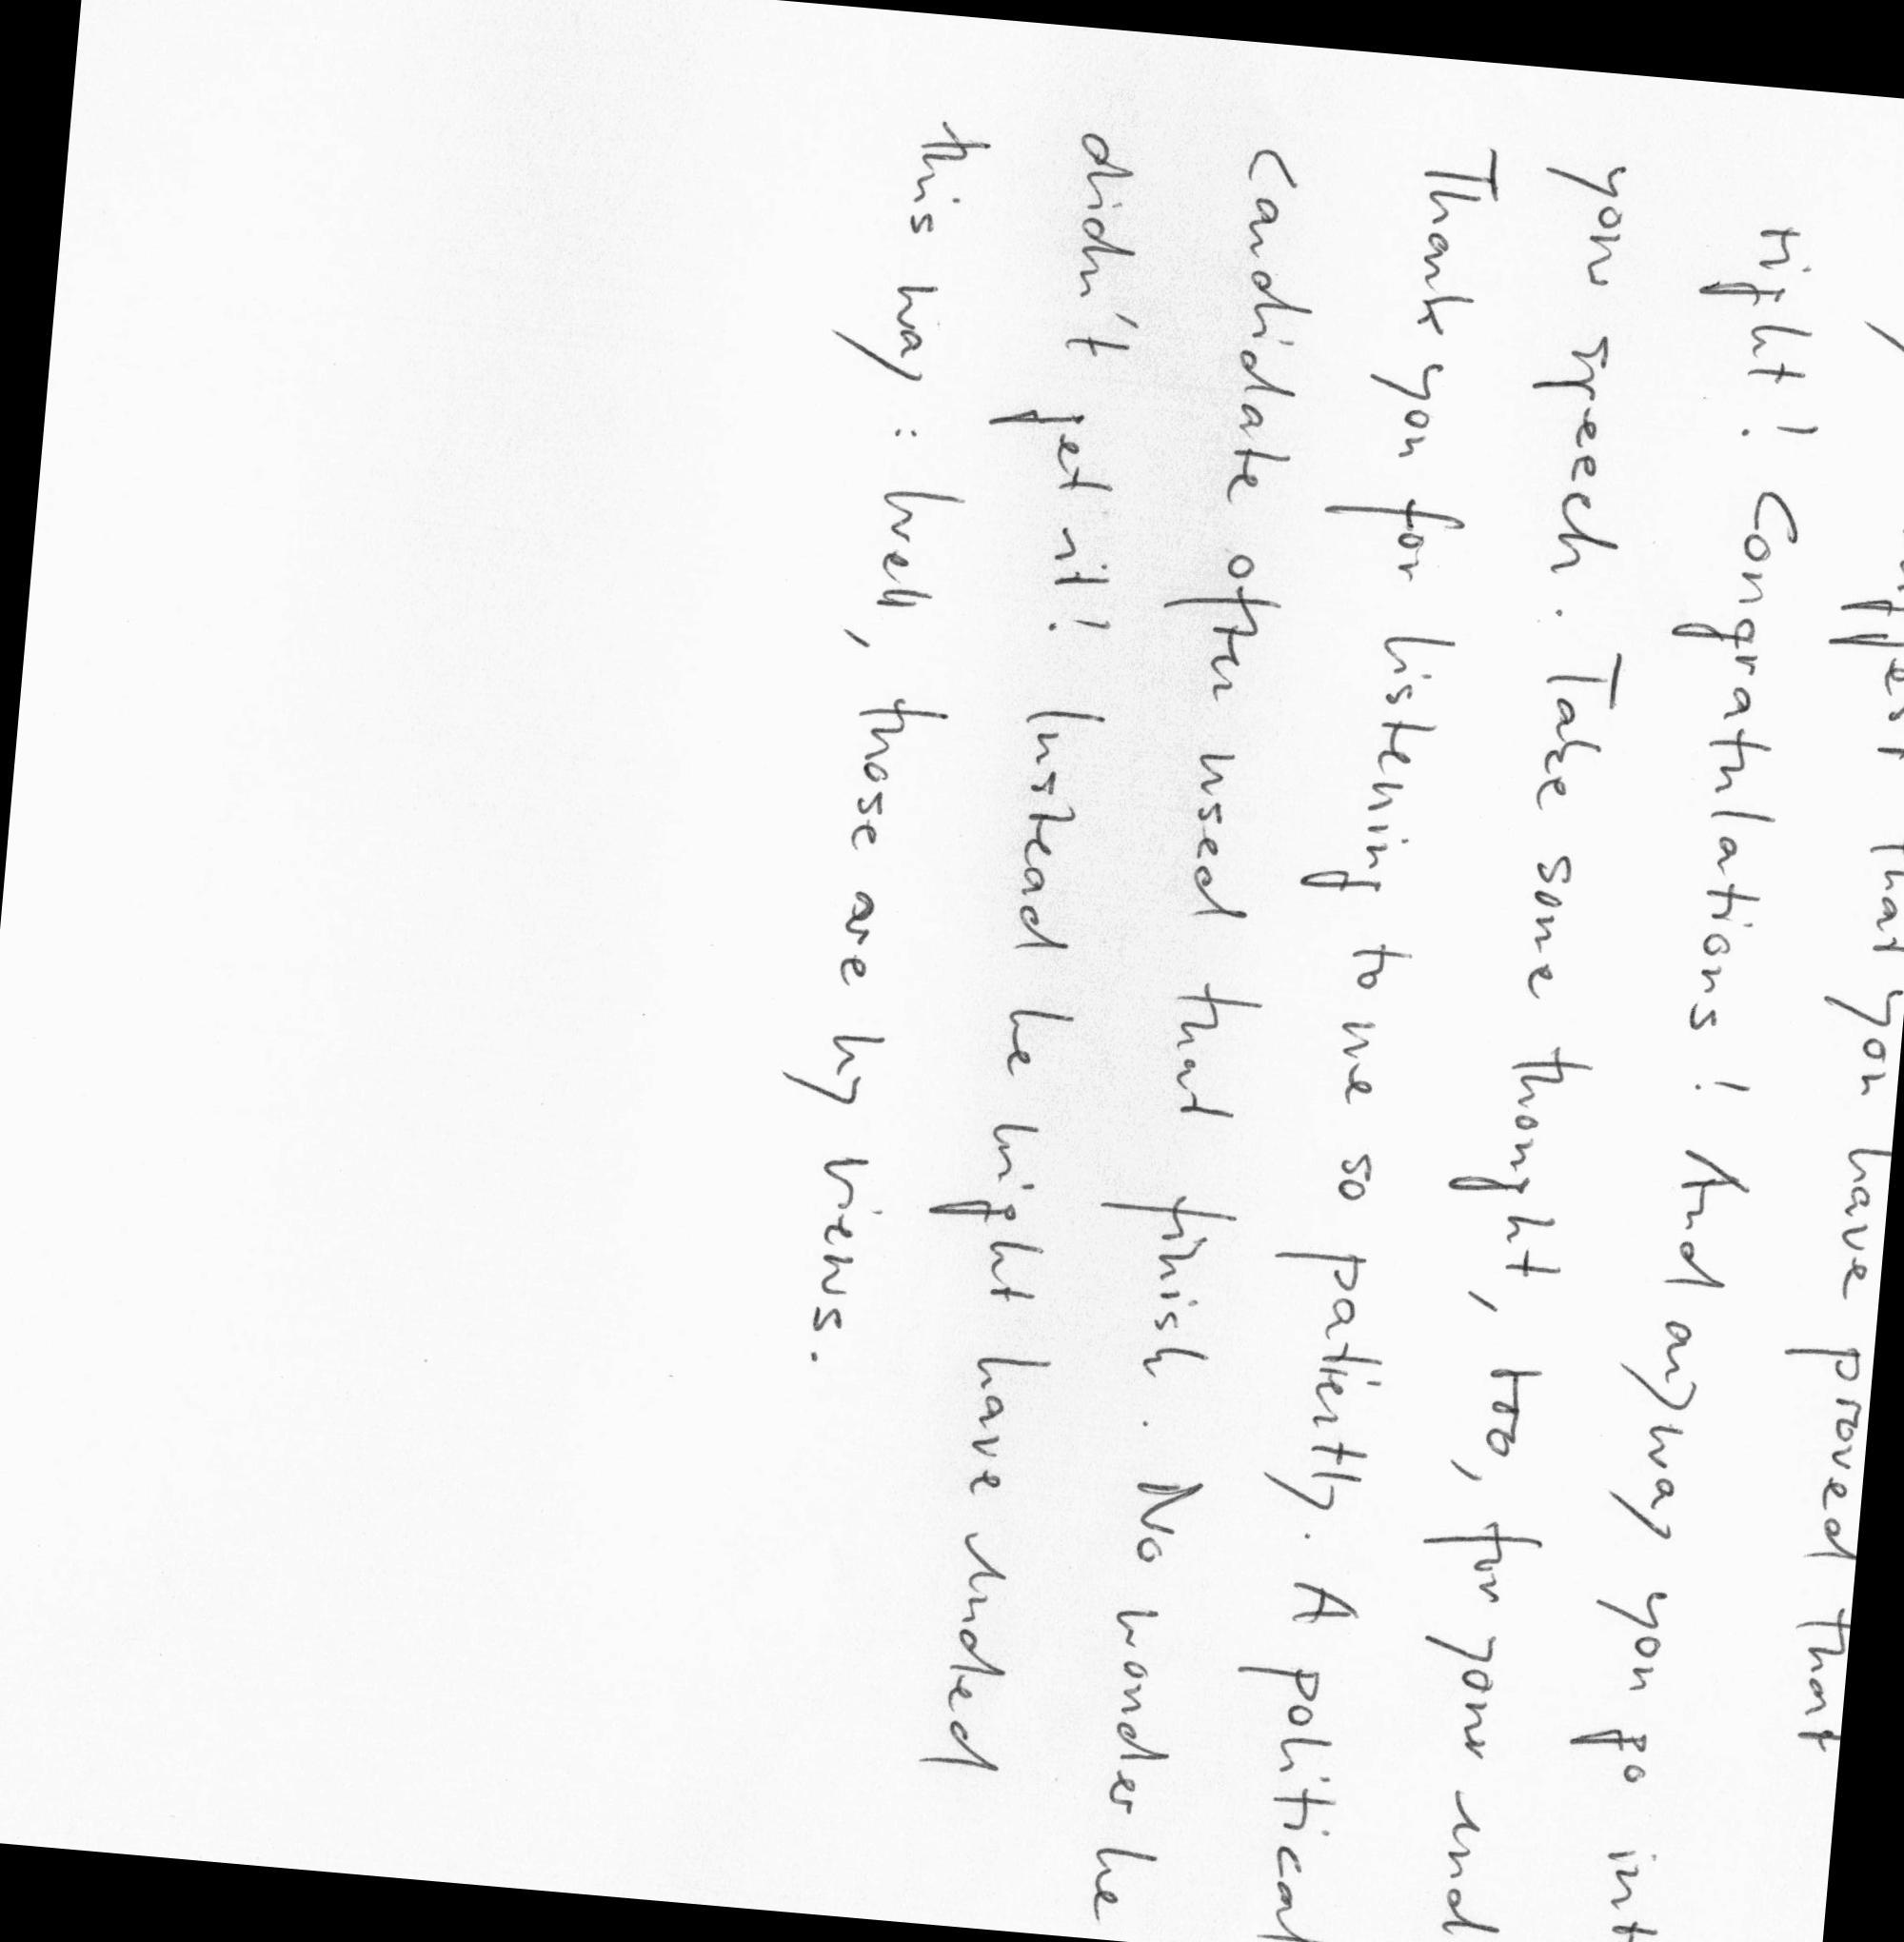 that you have proved that
right! Congratulations! And anyway you go
your speech. Take some thought, too, for your
Thank you for listening to me so patiently. A political
candidate often used that finish. No wonder he
didn't get it! Instead he might have ended
this way: well, those are my views.